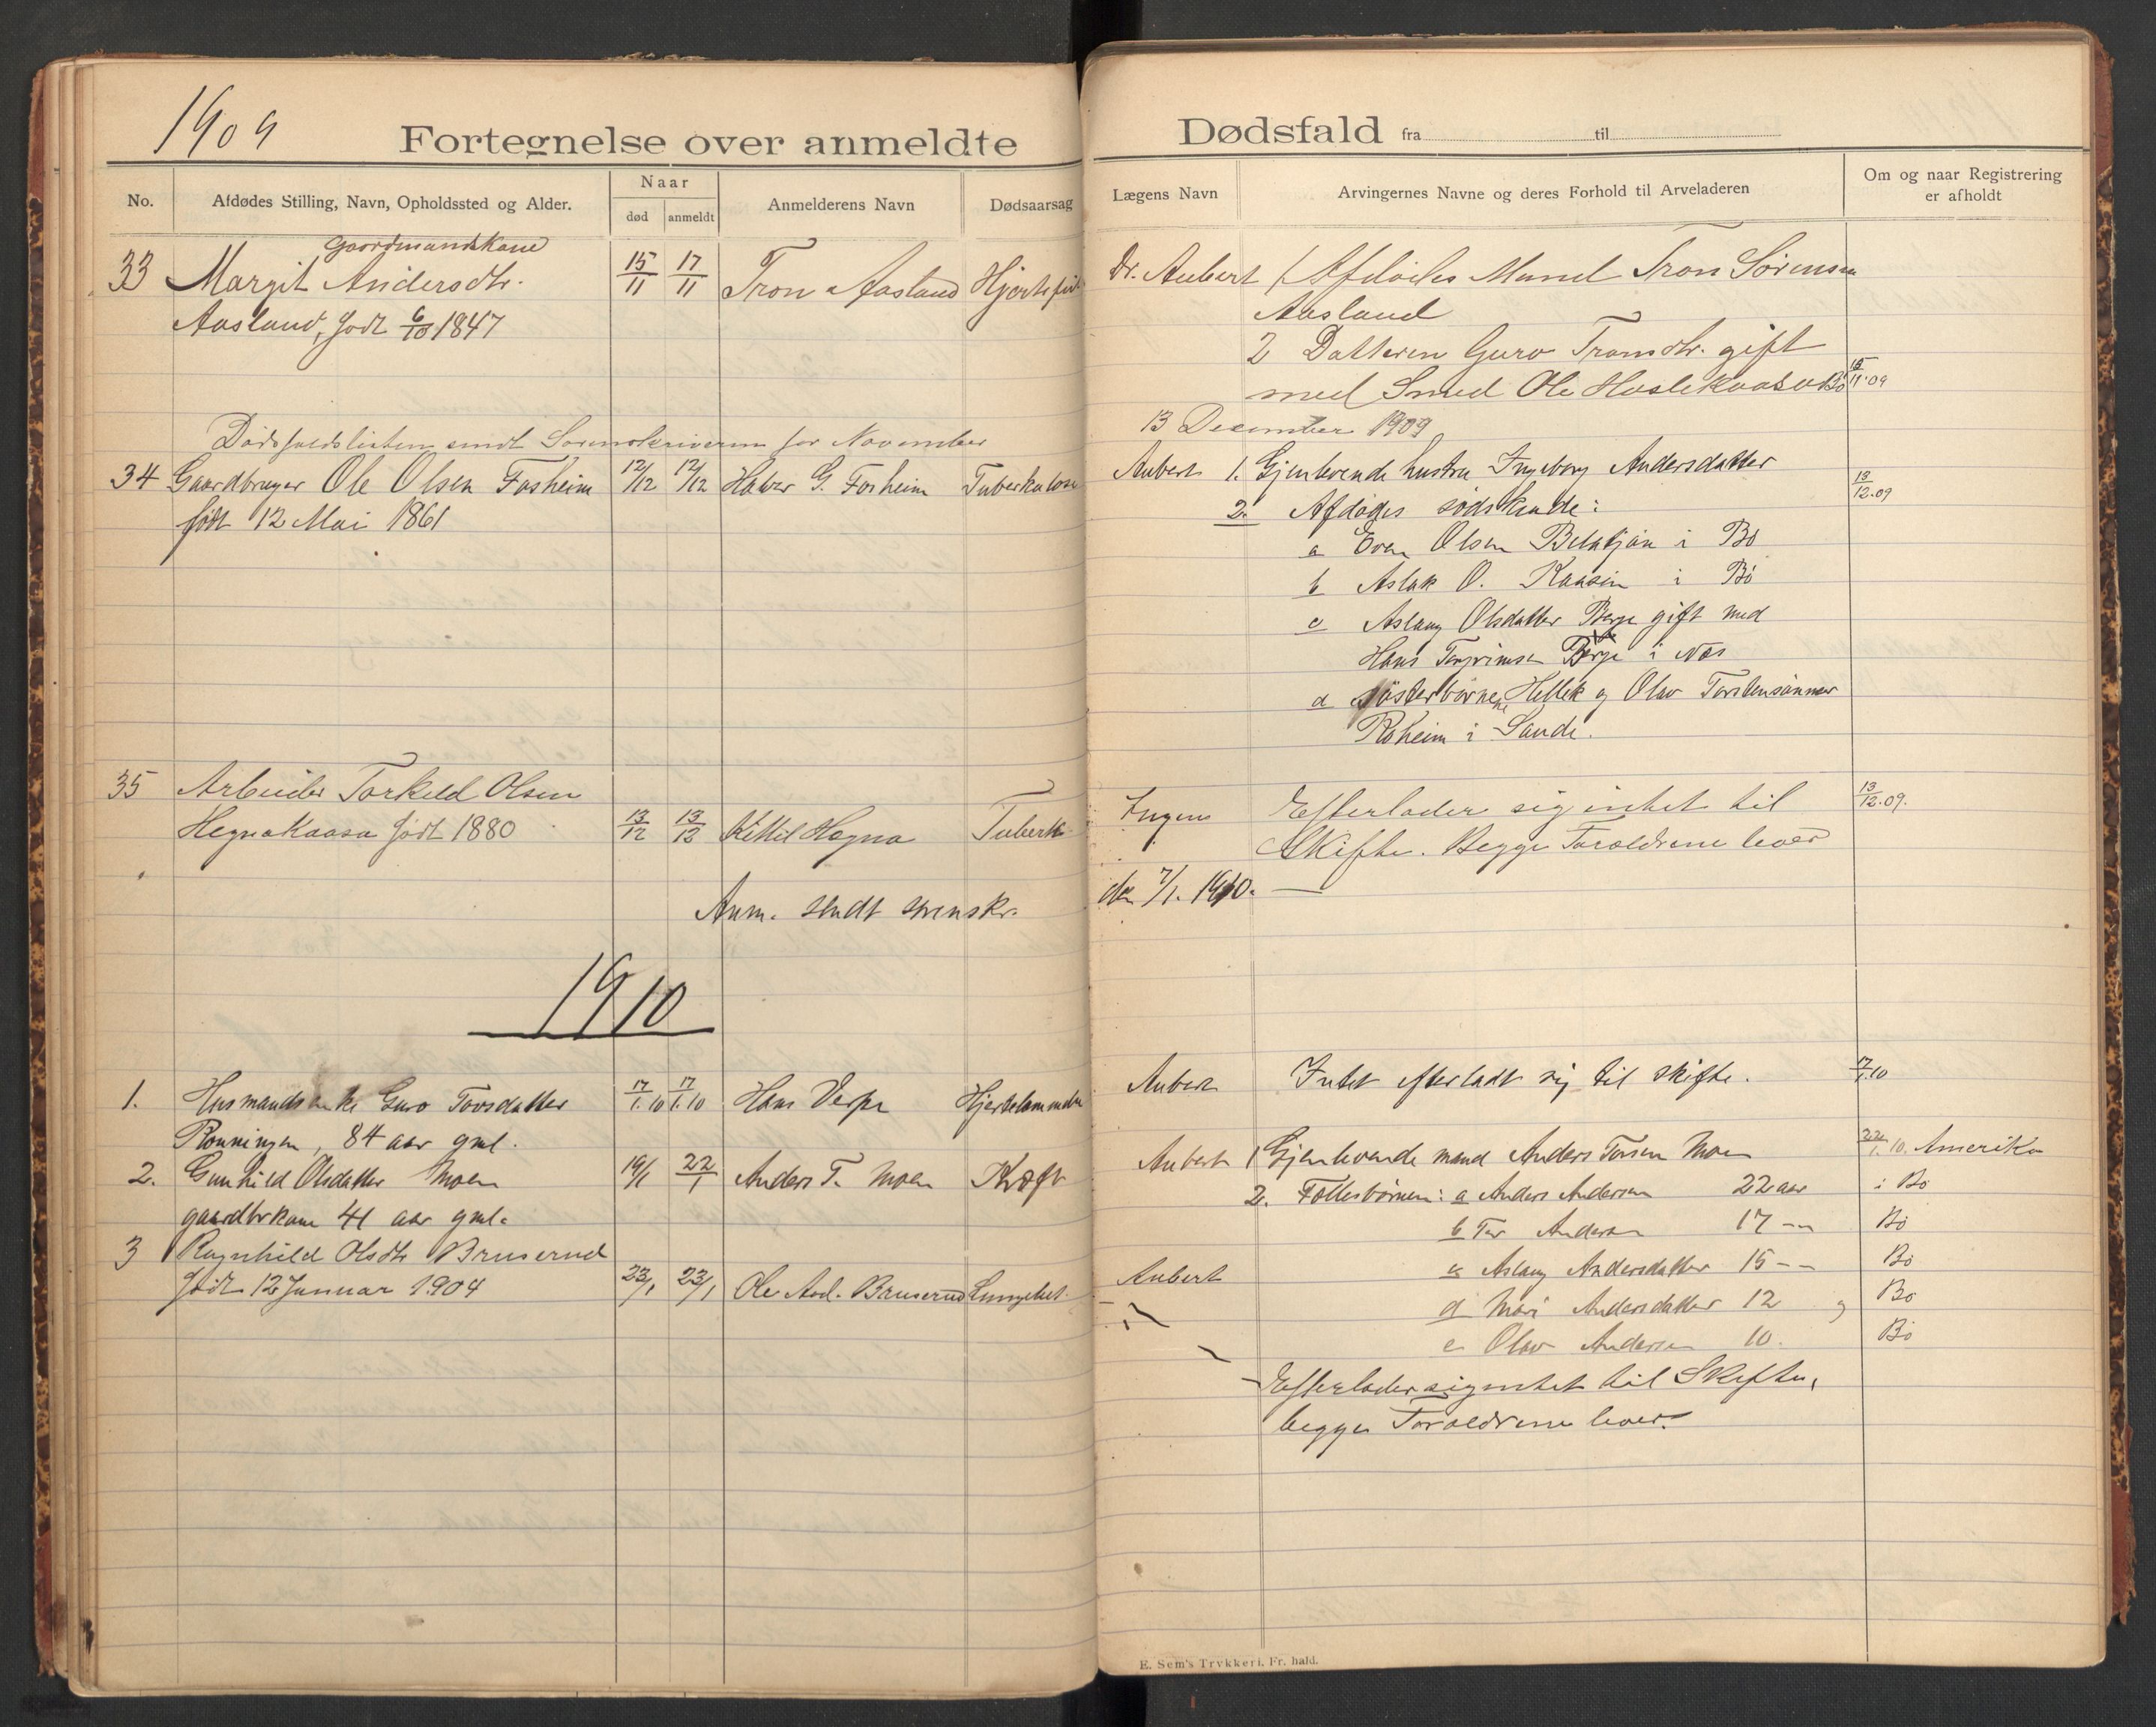 1909
Fortegnelse over anmeldte
No.
Afdødes Stilling, Navn, Opholdssted og Alder.
Naar
død
anmeldt
Anmelderens Navn
Dødsaarsag
Gaardmandskone
33 Margit Andersdtr. 15/11 17/11 Tron Aasland
Aasland, født 6/10 1847
Dødsfaldslisten sendt Sorenskriveren for November
34 Gaardbruger Ole Olsen Fosheim 12/12 12/12 Halvor G. Forheim Tuberkulose
født 12 Mai 1861
35 Arbeider Torkeld Olsen
Hegnakaasa født 1880 13/12 13/12 Kittil Hegna Tuberk.
Anm. sendt srenskr.
1910
1. Husmandsenke Guro Torsdatter 17/1.10 17/1.10 Hans Verpe
Rønningen, 84 aar gml.
2. Gunhild Olsdatter Moen 19/1 22/1 Anders T. Moen Kræft
gaardbrkone 41 aar gml.
3 Ragnhild Olsdtr Bruserud
født 12 Januar 1904 23/1 23/1 Ole And. Bruserud
Dødsfald fra til
Lægens Navn
Arvingernes Navne og deres Forhold til Arveladeren
Om og naar Registrering
er afholdt
Dr. Aubert 1 Afdødes Mand Tron Sørensen
Aasland
2 Datteren Guro Tronsdtr. gift
med Smed Ole Haslekaasa Bø 15/11.09
13 December 1909
Aubert 1. Gjenlevende hustru Ingeborg Andersdatter
2. Afdødes sødskende: 13/12.09
a Even Olsen i Bø
b Aslak O. Kaasin i Bø
c Aslaug Olsdatter Berge gift med
Hans Berge i Nes
d søsterbørnene Hellek og Olav Torstensønner
Roheim i Saude.
Ingen Efterlader sig intet til 13/12.09.
Skifte. Begge Forældrene lever
den 7/1. 1910.
Aubert Intet efterladt sig til skifte. 17/1.10
Aubert 1 Gjenlevende mand Anders Torsen Moen 22/1.10. Amerika
2. Fællesbørnene: a Anders Andersen 22 aar i Bø
b Tor Andersen 17 -- Bø
c Aslaug Andersdatter 15 -- Bø
Aubert
d Mari Andersdatter 12 og Bø
e Olav Andersen 10. Bø
Efterlader sig intet til Skifte,
begge Forældrene lever.
E. Sem's Trykkeri, Fr. hald.